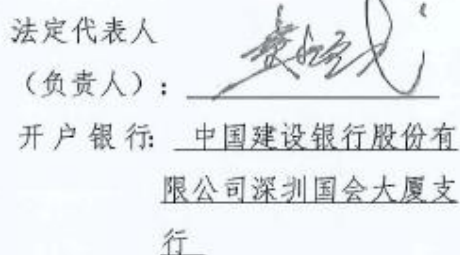 法定代表人
（负责人）：
开户银行: 中国建设银行股份有
限公司深圳国会大厦支
行